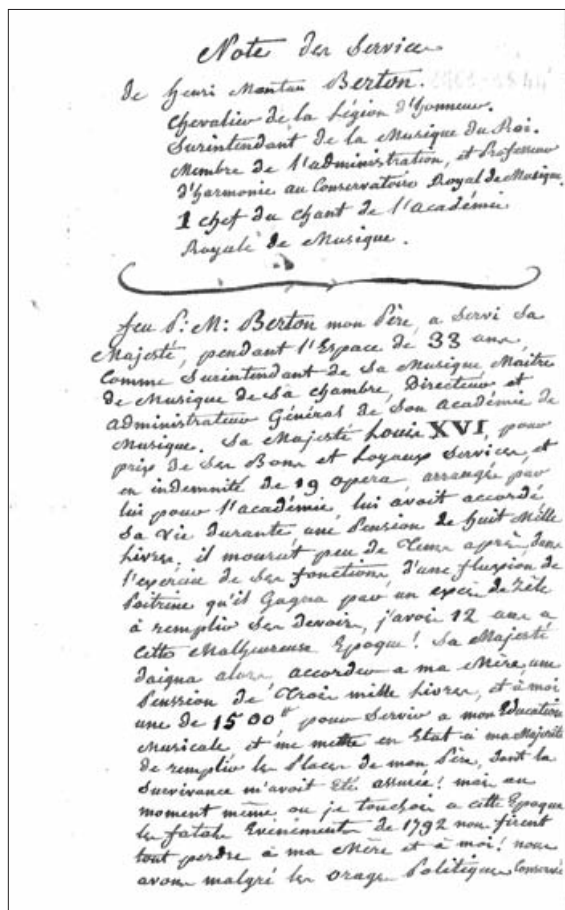 Note des Services
de henri Montan Berton.
chevalier de la Légion d'honneur.
Surintendant de la Musique du Roi.
Membre de l'administration, et Professeur
d'harmonie au Conservatoire Royal de Musique.
1 chef du chant de l'académie
Royale de Musique.
feu P: M: Berton mon Père, a servi Sa
Majesté, pendant l'Espace de 33 ans,
Comme Surintendant de Sa Musique, Maitre
de Musique de Sa chambre, Directeur et
administrateur Général de Son académie de
Musique. Sa Majesté Louis XVI, pour
prix de Ses Bons et Loyaux Services, et
en indemnité de 19 opera, arrangés par
lui pour l'académie, lui avoit accordé
Sa vie durante, une Pension de huit Mille
Livres, il mourut peu de Tems après, dans
l'exercice de Ses fonctions, d'une fluxion de
Poitrine qu'il Gagna par un excès de Zèle
à remplir Ses devoirs, j'avois 12 ans a
Cette Malheureuse Epoque! Sa Majesté
daigna alors accorder a ma Mère, une
Penssion de Trois mille Livres, et à moi
une de 1500 pour Servir a mon Education
Musicale, et me mettre en Etat à ma Majorité
de remplir les Places de mon Père, dont la
Survivance m'avoit Eté assurée! mais au
moment même ou je touchois a cette Epoque
les fatals Evénements de 1792 nous firent
tout perdre à ma Mère et à moi! nous
avons malgré les orages Politiques Conservé